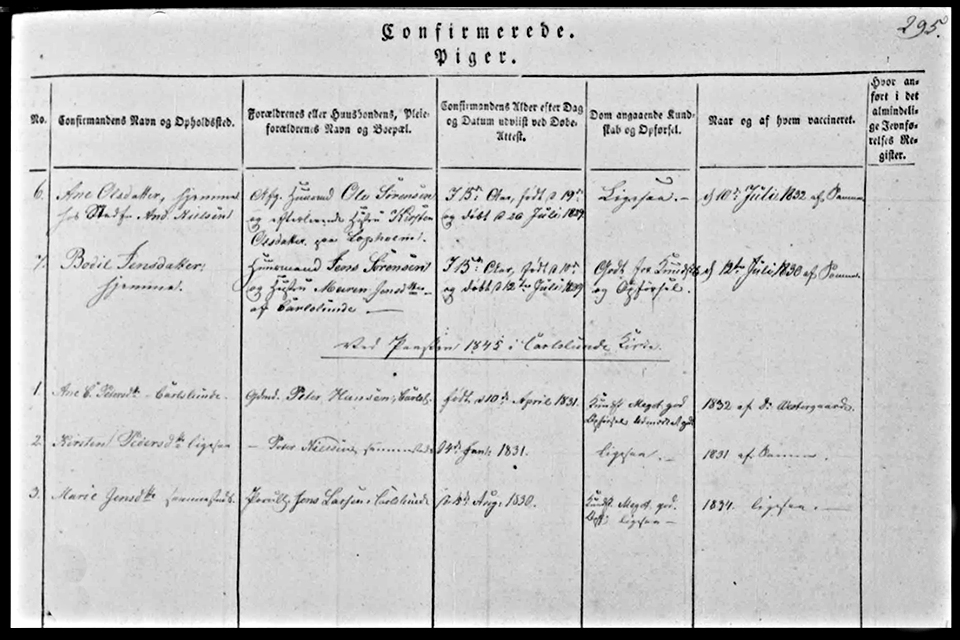 295.
Confirmerede.
Piger.
No.
Confirmandens Navn og Opholdssted.
Forældrenes eller Huusbondens, Pleie-
forældrenes Navn og Boepæl.
Confirmandens Alder efter Dag
og Datum udviist ved Døbe-
Attest.
Dom angaaende Kund-
skab og Opførsel.
Naar og af hvem vaccineret.
Hvor an-
ført i det
almindeli-
ge Jevnfø-
relses Re-
gister.
6.
Ane Olsdatter, hjemme
And. Nielsen
Huusmand Ole Sörensen
og efterlevende Hustru Kirsten
Olsdatter paa
15 Aar, født d 19
og døbt d 20 Julii 1829
Ligesaa.
d 10 Julii 1832 af Samme
7.
Bodil Jensdatter
hjemme.
Huusmand Jens Sörensen
og Hustru Maren
af Carlslunde
15 Aar, født d 10
og døbt d 12 Julii 1829
Godt for Kundskab
og Opførsel.
d 12 Julii 1830 af Samme
Ved Paasken 1845 i Carlslunde Kirke
1.
Ane C. Petersdtr Carlslunde.
Gdmd. Peter Hansen, Carlsl.
født d 10 April 1831.
Kundsk. Meget god
1832 af Dr Westergaard
2.
Kirsten Pedersdtr ligesaa
sammesteds
14 Jan. 1831.
ligesaa
1831 af Samme
3.
Marie Jensdtr sammesteds
Jens Larsen, Carlslunde
Aug. 1830.
Kundsk. Meget god
ligesaa
1834 ligesaa